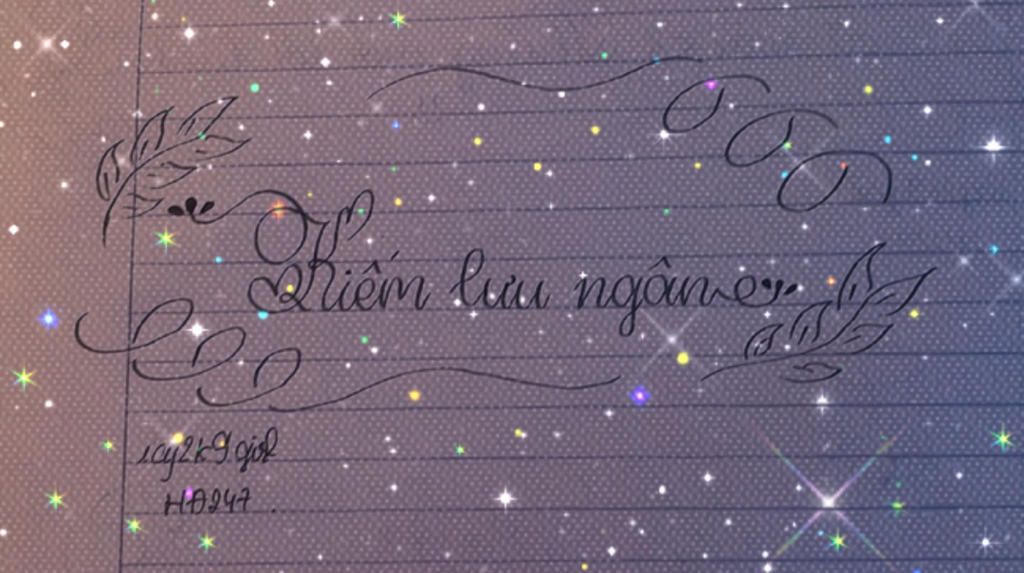 Khiếm lưu ngân
icy2k9.gioR
HĐ247.